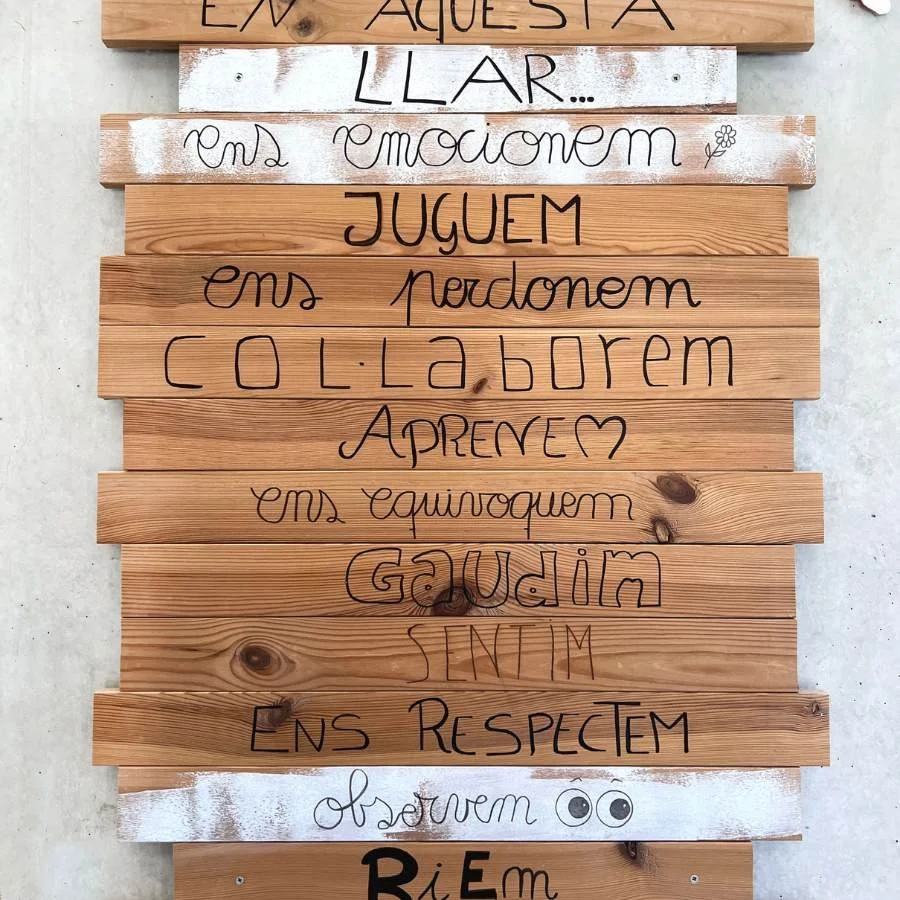 EN AQUESTA
LLAR...
ens emocionem
JUGUEM
ens perdonem
COL·LaborEm
APRENEM
ens equivoquem
GaUdim
SENTIM
ENS RESPECTEM
observem
RiEm